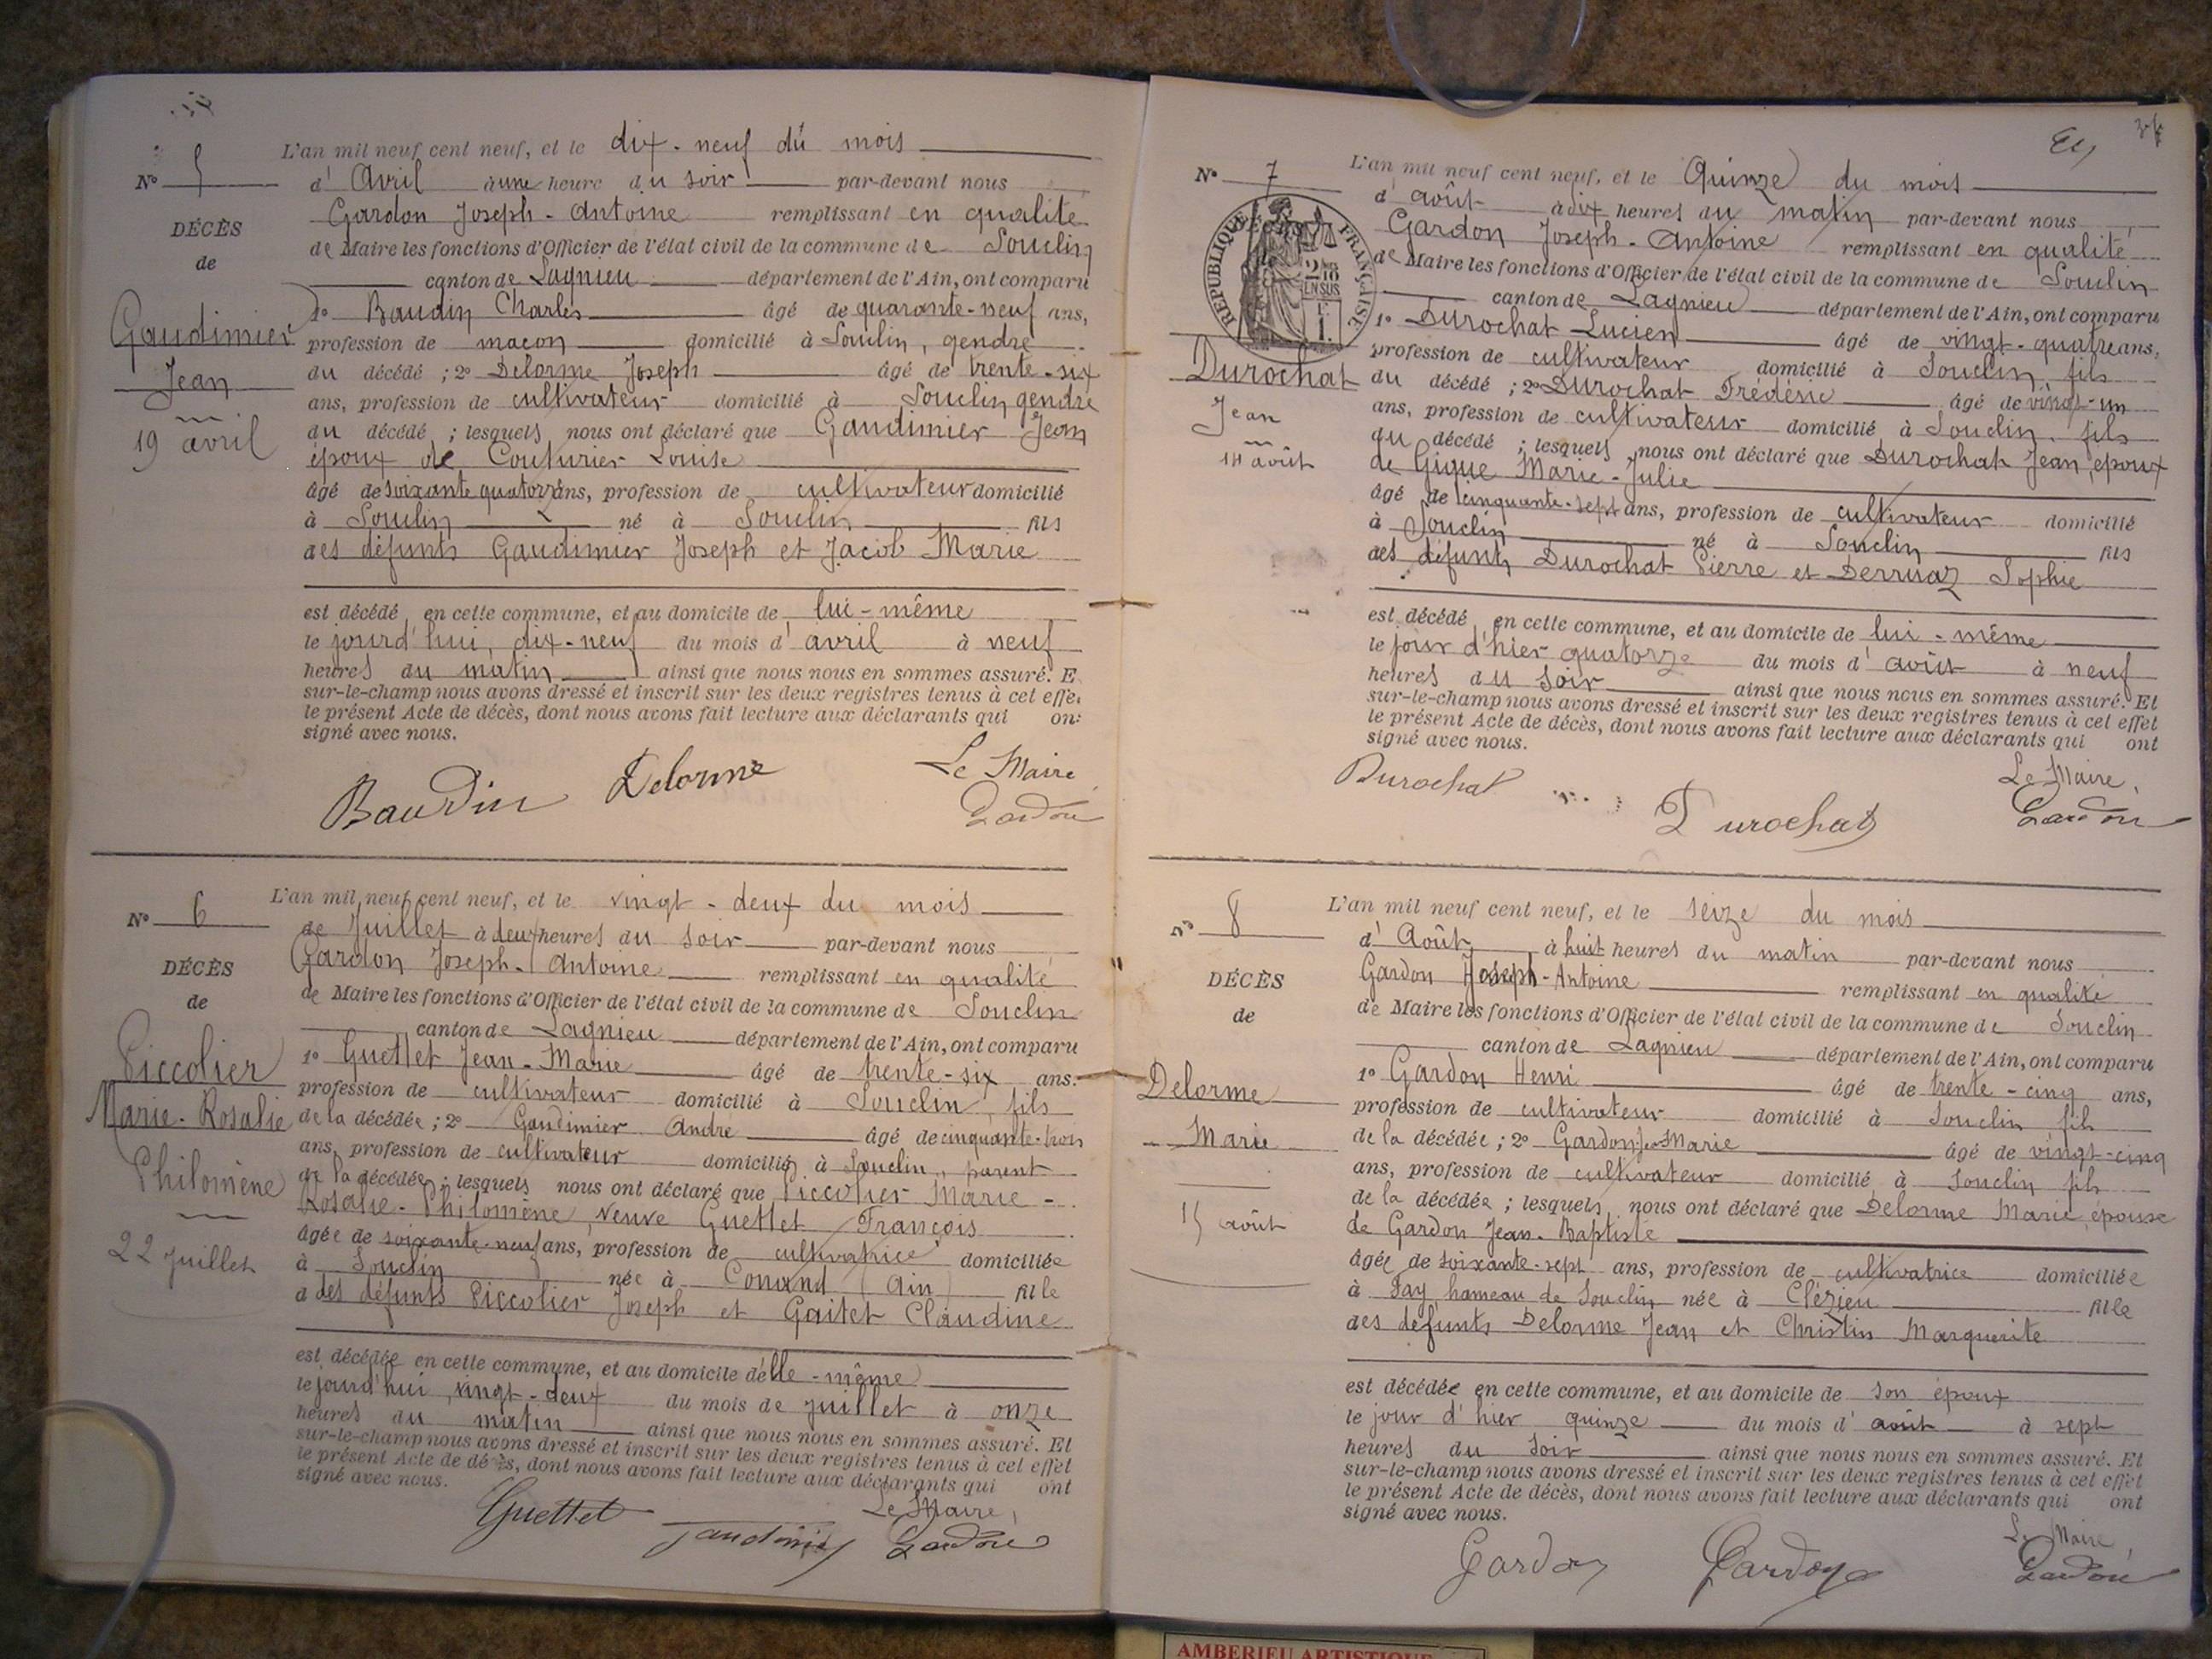 N° 5
DÉCÈS
de
Gaudimier
Jean
19 avril
L'an mil neuf cent neuf, et le dix-neuf du mois
d'Avril à une heure du soir par-devant nous
Gardon Joseph-Antoine remplissant en qualité
de Maire les fonctions d'Officier de l'état civil de la commune de Souclin
canton de Lagnieu département de l'Ain, ont comparu
1° Baudin Charles âgé de quarante-neuf ans,
profession de maçon domicilié à Souclin, gendre
du décédé ; 2° Delorme Joseph âgé de trente-six
ans, profession de cultivateur domicilié à Souclin gendre
du décédé ; lesquels nous ont déclaré que Gaudimier Jean
époux de Couturier Louise
âgé de soixante quatorze ans, profession de cultivateur domicilié
à Souclin né à Souclin fils
des défunts Gaudimier Joseph et Jacob Marie
est décédé en cette commune, et au domicile de lui-même
le jourd'hui, dix-neuf du mois d'avril à neuf
heures du matin ainsi que nous nous en sommes assuré. E
sur-le-champ nous avons dressé et inscrit sur les deux registres tenus à cet effe
le présent Acte de décès, dont nous avons fait lecture aux déclarants qui on
signé avec nous.
Baudin Delorme Le Maire,
Gardon
N° 6
DÉCÈS
de
Piccolier
Marie-Rosalie
Philomène
22 juillet
L'an mil neuf cent neuf, et le vingt-deux du mois
de Juillet à deux heures du soir par-devant nous
Gardon Joseph-Antoine remplissant en qualité
de Maire les fonctions d'Officier de l'état civil de la commune de Souclin
canton de Lagnieu département de l'Ain, ont comparu
1° Guettet Jean-Marie âgé de trente-six ans.
profession de cultivateur domicilié à Souclin, fils
de la décédée ; 2° Gaudimier André âgé de cinquante-trois
ans, profession de cultivateur domicilié à Souclin, parent
de la décédée ; lesquels nous ont déclaré que Piccolier Marie-
Rosalie-Philomène, veuve Guettet François
âgée de soixante-neuf ans, profession de cultivatrice domiciliée
à Souclin née à Conand (Ain) fille
des défunts Piccolier Joseph et Gaitet Claudine
est décédée en cette commune, et au domicile d'elle-même
le jourd'hui, vingt-deux du mois de juillet à onze
heures du matin ainsi que nous nous en sommes assuré. Et
sur-le-champ nous avons dressé et inscrit sur les deux registres tenus à cet effet
le présent Acte de décès, dont nous avons fait lecture aux déclarants qui ont
signé avec nous.
Le Maire,
Guettet Gaudimier Gardon
N° 7
RÉPUBLIQUE FRANÇAISE
Durochat
Jean
14 août
L'an mil neuf cent neuf, et le Quinze du mois
d'août à dix heures du matin par-devant nous
Gardon Joseph-Antoine remplissant en qualité
de Maire les fonctions d'Officier de l'état civil de la commune de Souclin
canton de Lagnieu département de l'Ain, ont comparu
1° Durochat Lucien âgé de vingt-quatre ans,
profession de cultivateur domicilié à Souclin, fils
du décédé ; 2° Durochat Frédéric âgé de vingt-un
ans, profession de cultivateur domicilié à Souclin, fils
du décédé ; lesquels nous ont déclaré que Durochat Jean, époux
de Gigue Marie-Julie
âgé de cinquante-sept ans, profession de cultivateur domicilié
à Souclin né à Souclin fils
des défunts Durochat Pierre et Derruaz Sophie
est décédé en cette commune, et au domicile de lui-même
le jour d'hier quatorze du mois d'août à neuf
heures du soir ainsi que nous nous en sommes assuré. Et
sur-le-champ nous avons dressé et inscrit sur les deux registres tenus à cet effet
le présent Acte de décès, dont nous avons fait lecture aux déclarants qui ont
signé avec nous.
Le Maire,
Durochat Durochat Gardon
N° 8
DÉCÈS
de
Delorme
Marie
15 août
L'an mil neuf cent neuf, et le seize du mois
d'Août à huit heures du matin par-devant nous
Gardon Joseph-Antoine remplissant en qualité
de Maire les fonctions d'Officier de l'état civil de la commune de Souclin
canton de Lagnieu département de l'Ain, ont comparu
1° Gardon Henri âgé de trente-cinq ans,
profession de cultivateur domicilié à Souclin fils
de la décédée ; 2° Gardon Marie âgé de vingt-cinq
ans, profession de cultivateur domicilié à Souclin fils
de la décédée ; lesquels nous ont déclaré que Delorme Marie, épouse
de Gardon Jean-Baptiste
âgée de soixante-sept ans, profession de cultivatrice domiciliée
à Fay, hameau de Souclin née à Cleyzieu fille
des défunts Delorme Jean et Christin Marguerite
est décédée en cette commune, et au domicile de son époux
le jour d'hier quinze du mois d'août à sept
heures du soir ainsi que nous nous en sommes assuré. Et
sur-le-champ nous avons dressé et inscrit sur les deux registres tenus à cet effet
le présent Acte de décès, dont nous avons fait lecture aux déclarants qui ont
signé avec nous.
Le Maire,
Gardon Gardon Gardon
AMBERIEU ARTISTIQUE